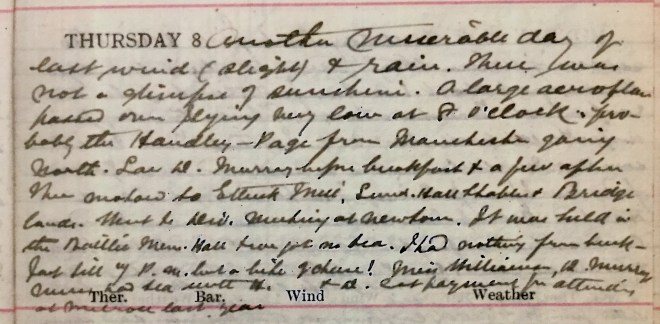 THURSDAY 8 Another miserable day of
east wind (slight) & rain. There was
not a glimpse of sunshine. A large aeroplane
passed over flying very low at 8 o'clock. pro-
bably the Handley-Page from Manchester going
North. Saw D. Murray before breakfast & a few after
then motored to Ettrick Mill, & Bridge
lands. Went to Dist. Meeting at Newtown. It was held in
the Baillie Mem. Hall & we got no tea. I had nothing from break-
fast till 7 P.m. but a bite of cheese! Miss Williamson, D. Murray
had tea with H. & D. Got payment for attending
at Melrose last year
Ther. Bar. Wind Weather